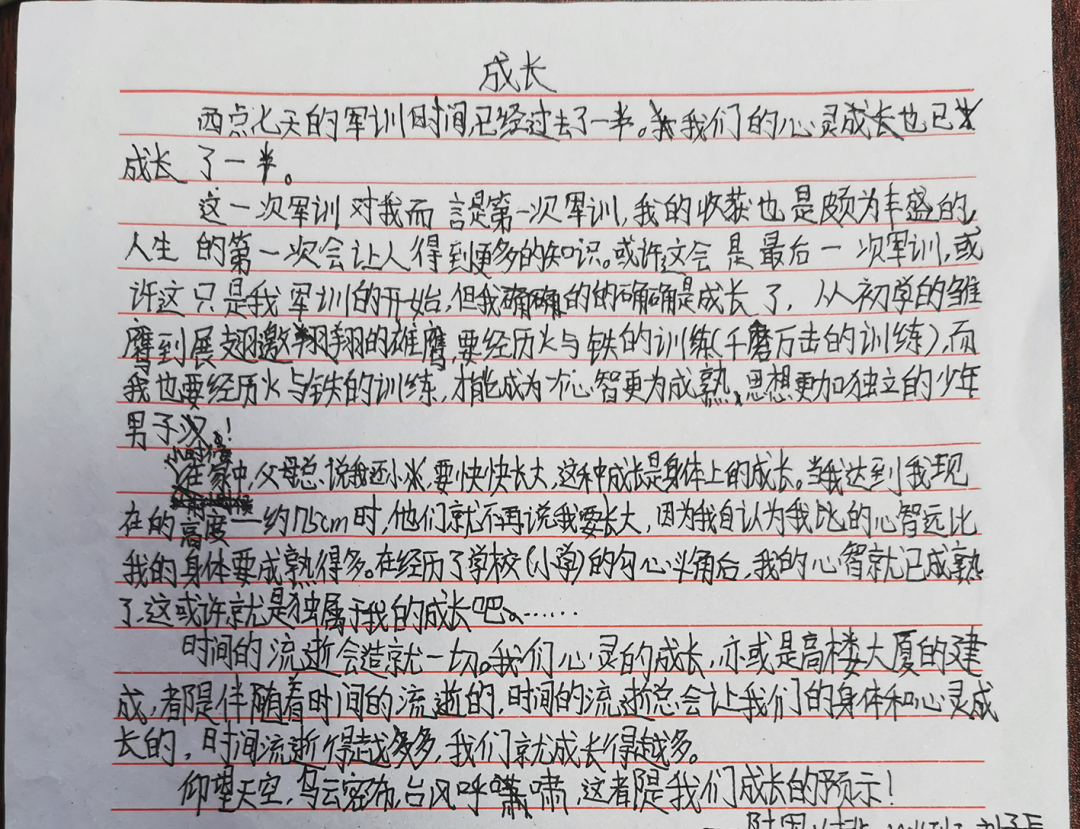 成长
西点七天的军训时间,已经过去了一半。我们的心灵成长也已
成长了一半。
这一次军训对我而言是第一次军训,我的收获也是颇为丰盛的,
人生的第一次会让人得到更多的知识。或许这会是最后一次军训,或
许这只是我军训的开始,但我确确的的确确是成长了,从初学的雏
鹰到展翅遨翔翔的雄鹰,要经历火与铁的训练(千磨万击的训练),而
我也要经历火与铁的训练,才能成为心智更为成熟、思想更加独立的少年
男子汉!
小时候
在家中,父母总说我还小,要快快长大,这种成长是身体上的成长。当我达到我现
在的高度——约175cm时,他们就不再说我要长大,因为我自认为我比的心智远比
我的身体要成熟得多。在经历了学校(小学)的勾心斗角后,我的心智就已成熟
了,这或许就是独属于我的成长吧。……
时间的流逝会造就一切。我们心灵的成长,亦或是高楼大厦的建
成,都是伴随着时间的流逝的,时间的流逝总会让我们的身体和心灵成
长的,时间流逝得越多多,我们就成长得越多。
仰望天空,乌云密布,台风呼啸,这都是我们成长的预示!